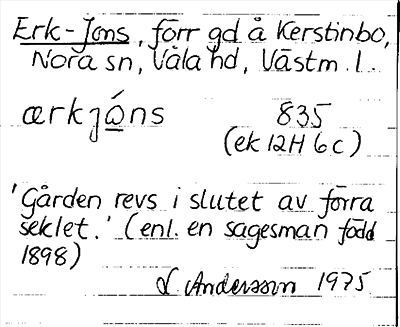 Erk-Jons, förr gd å Kerstinbo,
Nora sn, Våla hd, Västm. l.
ærkjóns 835
(ek 12H 6c)
'Gården revs i slutet av förra
seklet.' (enl. en sagesman född
1898)
L Andersson 1975